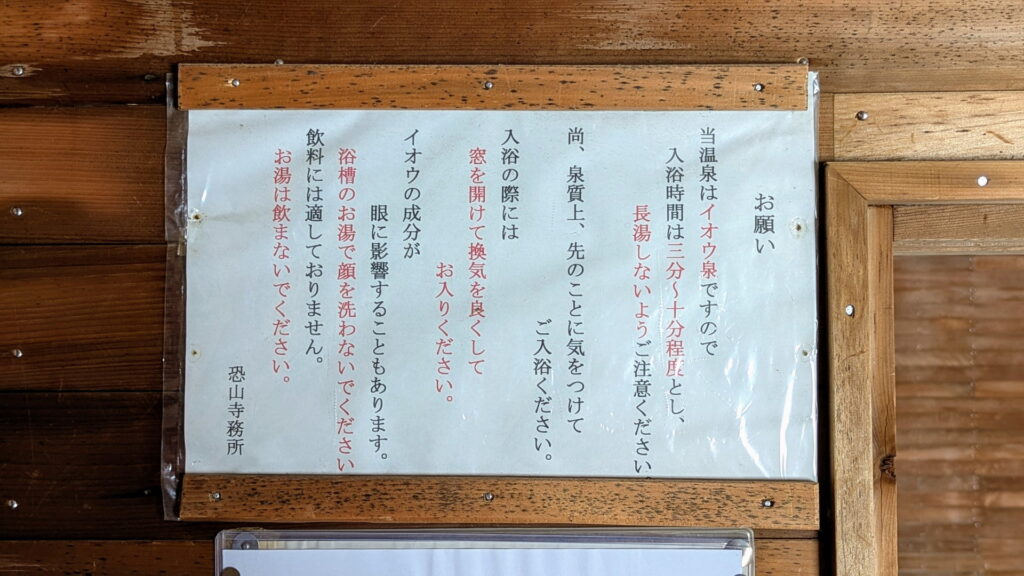 お願い
当温泉はイオウ泉ですので
入浴時間は三分～十分程度とし、
長湯しないようご注意ください
尚、泉質上、先のことに気をつけて
ご入浴ください。
入浴の際には
窓を開けて換気を良くして
お入りください。
イオウの成分が
眼に影響することもあります。
浴槽のお湯で顔を洗わないでください
飲料には適しておりません。
お湯は飲まないでください。
恐山寺務所